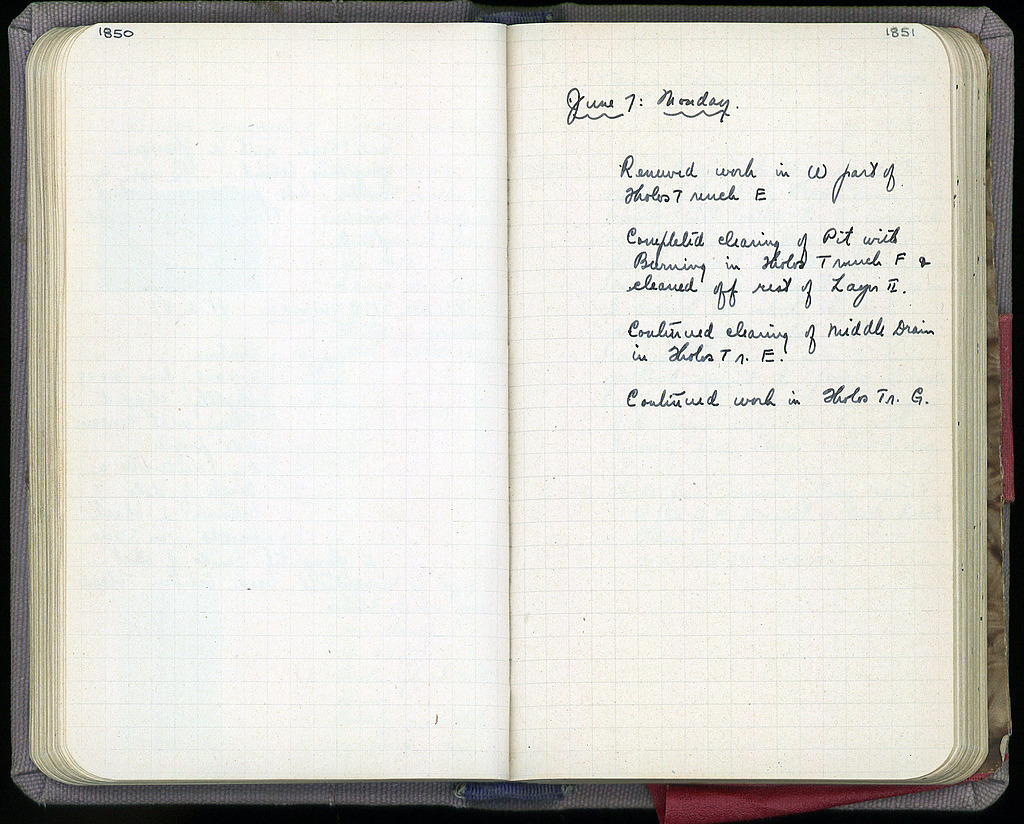 1850
1851
June 7: Monday.
Renewed work in W part of
Tholos Trench E
Completed clearing of Pit with
Burning in Tholos Trench F &
cleaned off rest of Layer II.
Continued clearing of Middle Drain
in Tholos Tr. E.
Continued work in Tholos Tr. G.